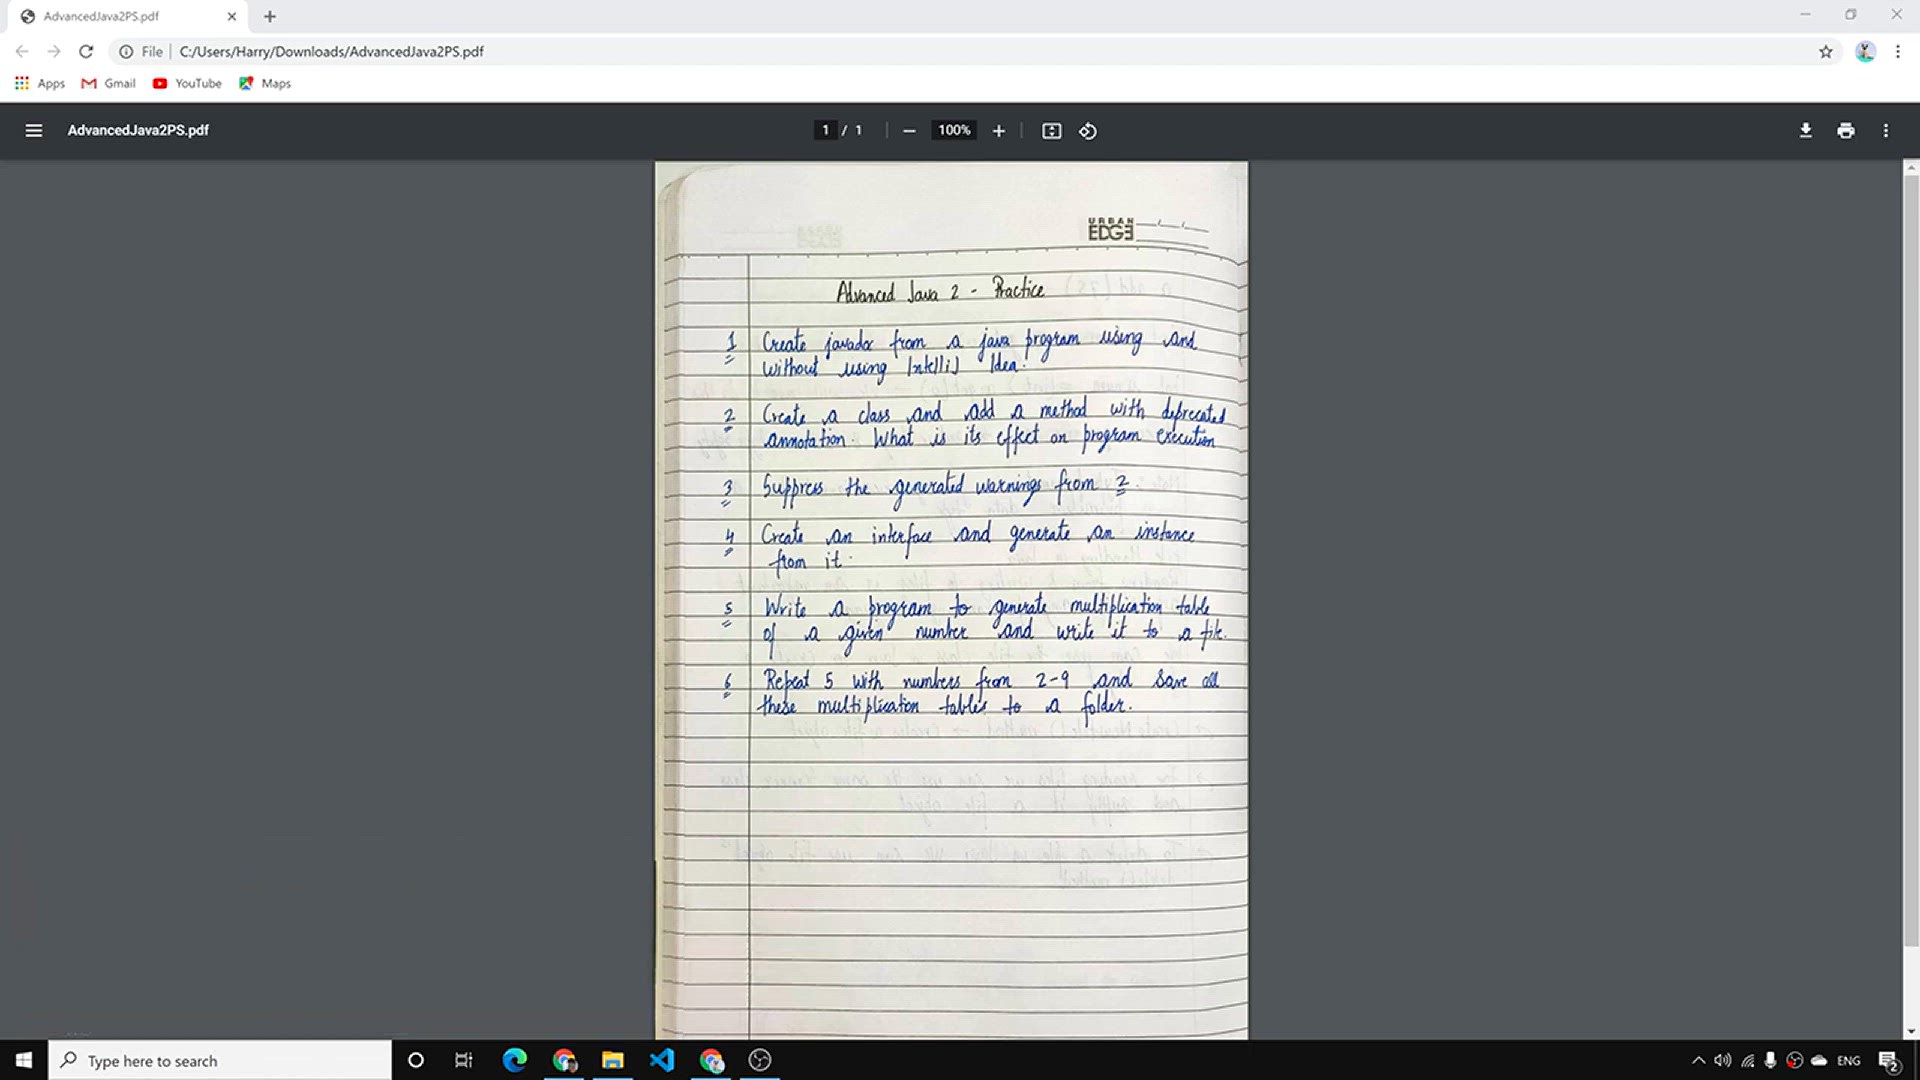 AdvancedJava2PS.pdf
File | C:/Users/Harry/Downloads/AdvancedJava2PS.pdf
Apps Gmail YouTube Maps
AdvancedJava2PS.pdf 1 / 1 100%
URBAN
EDGE
Advanced Java 2 - Practice
1 Create javadoc from a java program using and
without using IntelliJ Idea.
2 Create a class and add a method with deprecated
annotation. What is its effect on program execution
3 Suppress the generated warnings from 2.
4 Create an interface and generate an instance
from it.
5 Write a program to generate multiplication table
of a given number and write it to a file.
6 Repeat 5 with numbers from 2-9 and save all
these multiplication tables to a folder.
Type here to search
ENG
2